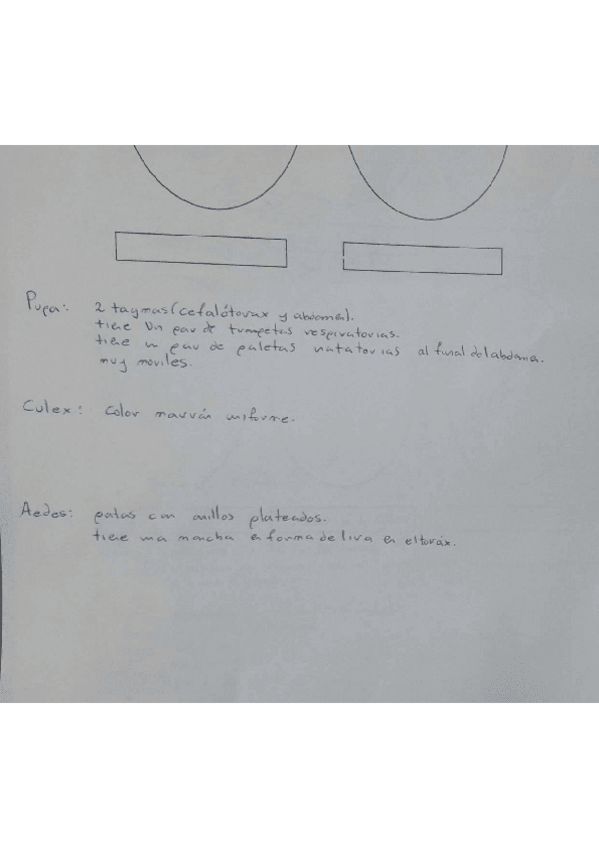 Pupa: 2 tagmas (cefalótorax y abdomen).
tiene un par de trompetas respiratorias.
tiene un par de paletas natatorias al final del abdomen.
muy moviles.
Culex: Color marrón uniforme.
Aedes: patas con anillos plateados.
tiene una mancha en forma de lira en el toráx.